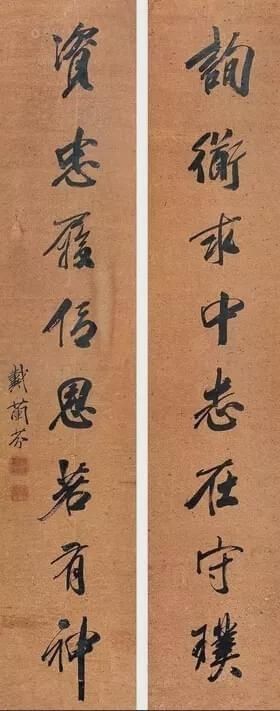 詢衡求中志在守璞
資忠履信思若有神
戴蘭芬